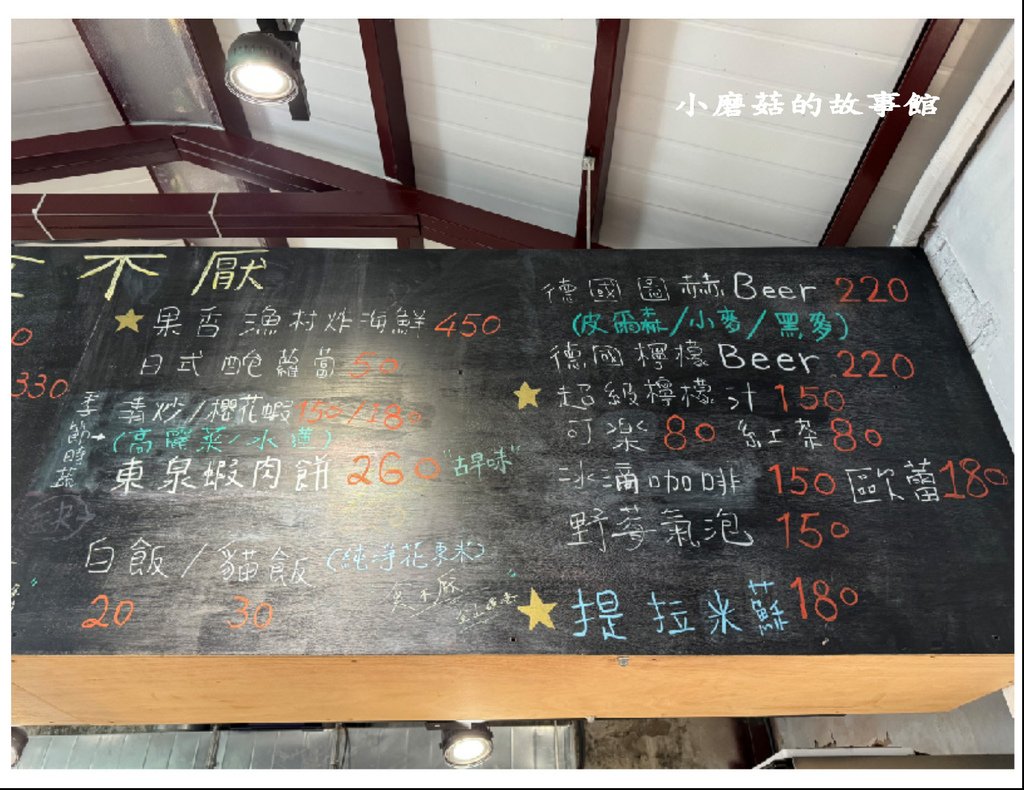 小磨菇的故事館
不厭
果香漁村炸海鮮 450
日式醃蘿蔔 50
330
季節時蔬
清炒/櫻花蝦 150/180
(高麗菜/水蓮)
東泉蝦肉餅 260 "古早味"
白飯/貓飯 (純淨花東米)
20 30
德國圖赫Beer 220
(皮爾森/小麥/黑麥)
德國檸檬Beer 220
超級檸檬汁 150
可樂 80 紅茶 80
冰滴咖啡 150 歐蕾 180
野莓氣泡 150
提拉米蘇 180